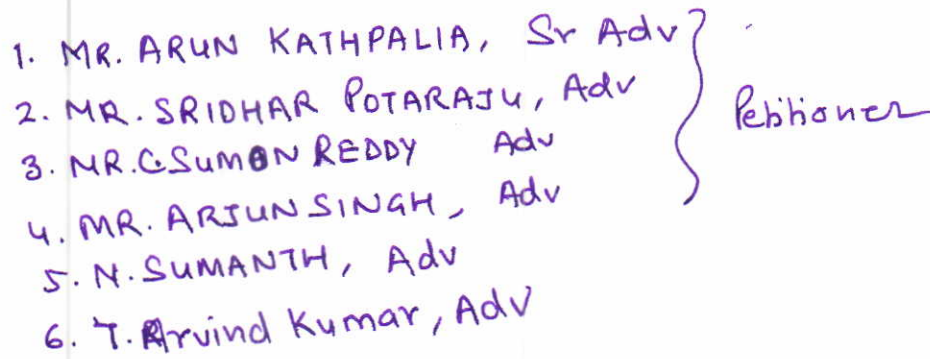 1. MR. ARUN KATHPALIA, Sr Adv
2. MR. SRIDHAR POTARAJU, Adv
3. MR. C. SUMON REDDY Adv
4. MR. ARJUN SINGH, Adv
5. N. SUMANTH, Adv
6. T. Arvind Kumar, Adv
Petitioner